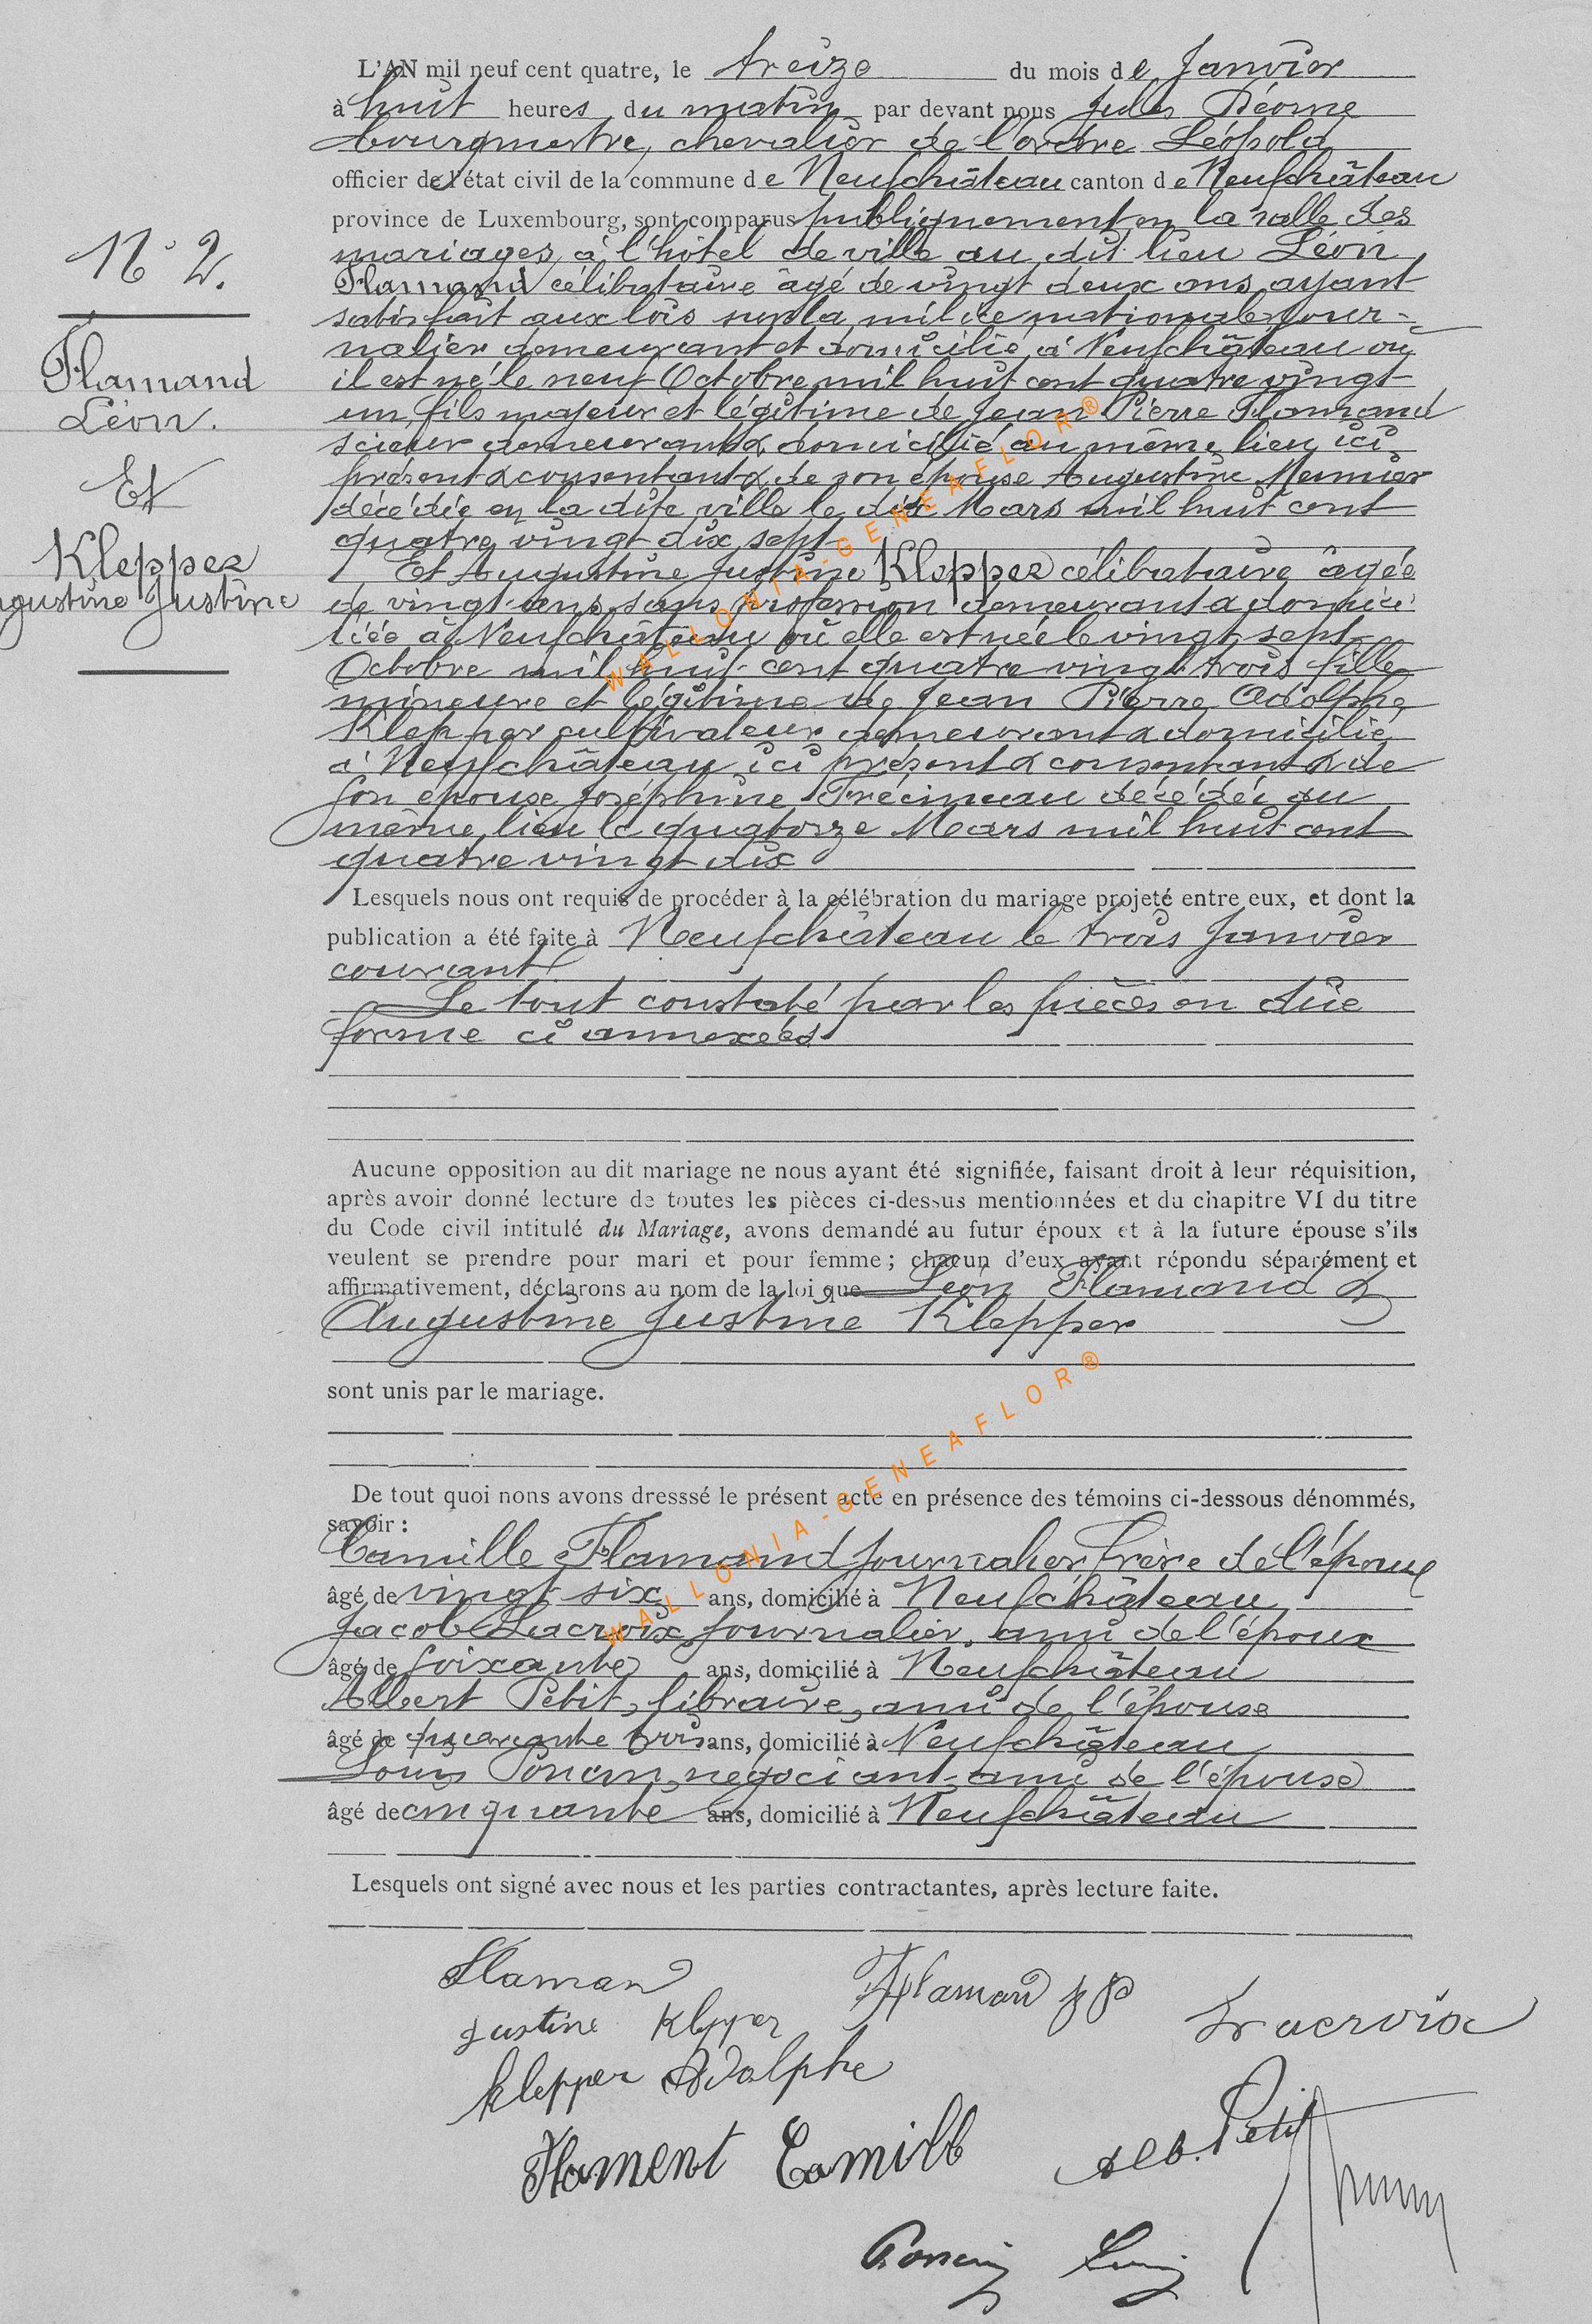 L'AN mil neuf cent quatre, le treize du mois de Janvier
à huit heures du matin par devant nous Jules
bourgmestre, chevalier de l'ordre Léopold
officier de l'état civil de la commune de Neufchâteau canton de Neufchâteau
province de Luxembourg, sont comparus publiquement en la salle des
mariages, à l'hôtel de ville au dit lieu Léon
Flamand célibataire âgé de vingt deux ans, ayant
satisfait aux lois sur la milice nationale, jour-
nalier demeurant et domicilié à Neufchâteau où
il est né le neuf Octobre mil huit cent quatre vingt
un, fils majeur et légitime de Jean Pierre Flamand
scieur demeurant & domicilié au même lieu ici
présent & consentant & de son épouse Augustine Meunier
décédée en la dite ville le dix Mars mil huit cent
quatre vingt dix sept
Et Augustine Justine Klepper célibataire âgée
de vingt ans, sans profession demeurant & domici
liée à Neufchâteau où elle est née le vingt sept
Octobre mil huit cent quatre vingt trois fille
mineure et légitime de Jean Pierre Adolphe
Klepper cultivateur demeurant & domicilié
à Neufchâteau ici présent & consentant & de
son épouse Joséphine décédée au
même lieu le quatorze Mars mil huit cent
quatre vingt dix
Lesquels nous ont requis de procéder à la célébration du mariage projeté entre eux, et dont la
publication a été faite à Neufchâteau le trois Janvier
courant
Le tout constaté par les pièces en due
forme ci annexées
N° 2.
Flamand
Léon.
Et
Klepper
Augustine Justine
Aucune opposition au dit mariage ne nous ayant été signifiée, faisant droit à leur réquisition,
après avoir donné lecture de toutes les pièces ci-dessus mentionnées et du chapitre VI du titre
du Code civil intitulé du Mariage, avons demandé au futur époux et à la future épouse s'ils
veulent se prendre pour mari et pour femme ; chacun d'eux ayant répondu séparément et
affirmativement, déclarons au nom de la loi que Léon Flamand &
Augustine Justine Klepper
sont unis par le mariage.
De tout quoi nons avons dresssé le présent acte en présence des témoins ci-dessous dénommés,
savoir :
Camille Flamand journalier frère de l'époux
âgé de vingt six ans, domicilié à Neufchâteau
Jacob Lacroix, journalier, ami de l'époux
âgé de soixante ans, domicilié à Neufchâteau
Albert Petit, libraire, ami de l'épouse
âgé de quarante trois ans, domicilié à Neufchâteau
Louis Poncin, négociant, ami de l'épouse
âgé de cinquante ans, domicilié à Neufchâteau
Lesquels ont signé avec nous et les parties contractantes, après lecture faite.
Flaman
Flaman jp
Lacroix
Justine Klepper
Klepper Adolphe
Flament Camill
Alb. Petit
Poncin Louis
WALLONIA-GENEAFLOR®
WALLONIA-GENEAFLOR®